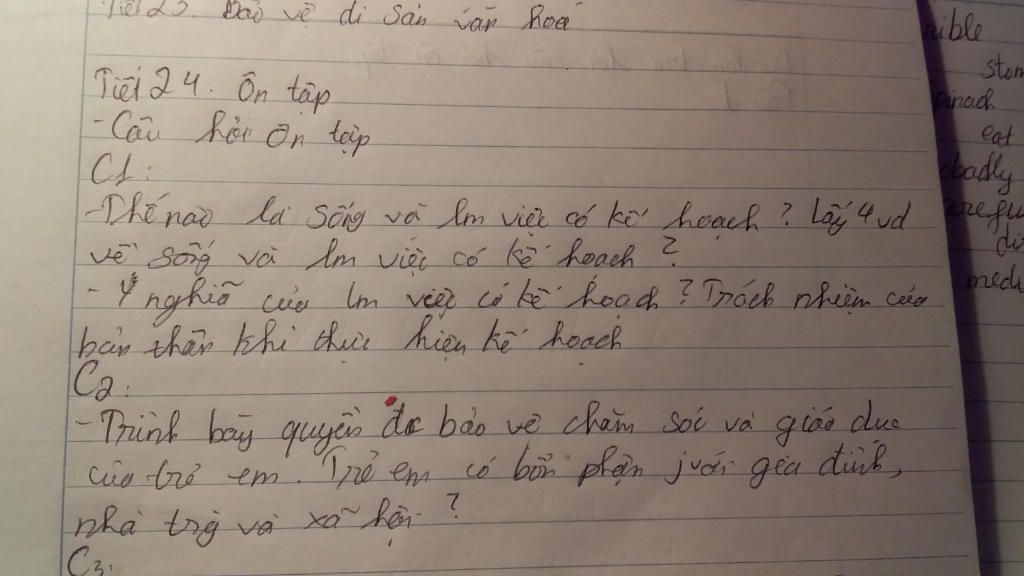 Tiết 23. Bảo vệ di sản văn hoá
Tiết 24. Ôn tập
- Câu hỏi ôn tập
C1:
- Thế nào là sống và lm việc có kế hoạch? Lấy 4 vd
về sống và lm việc có kế hoạch?
- Ý nghĩa của lm việc có kế hoạch? Trách nhiệm của
bản thân khi thực hiện kế hoạch
C2:
- Trình bày quyền đc bảo vệ chăm sóc và giáo dục
của trẻ em. Trẻ em có bổn phận j với gia đình,
nhà trg và xã hội?
C3:
stom
pinach
eat
badly